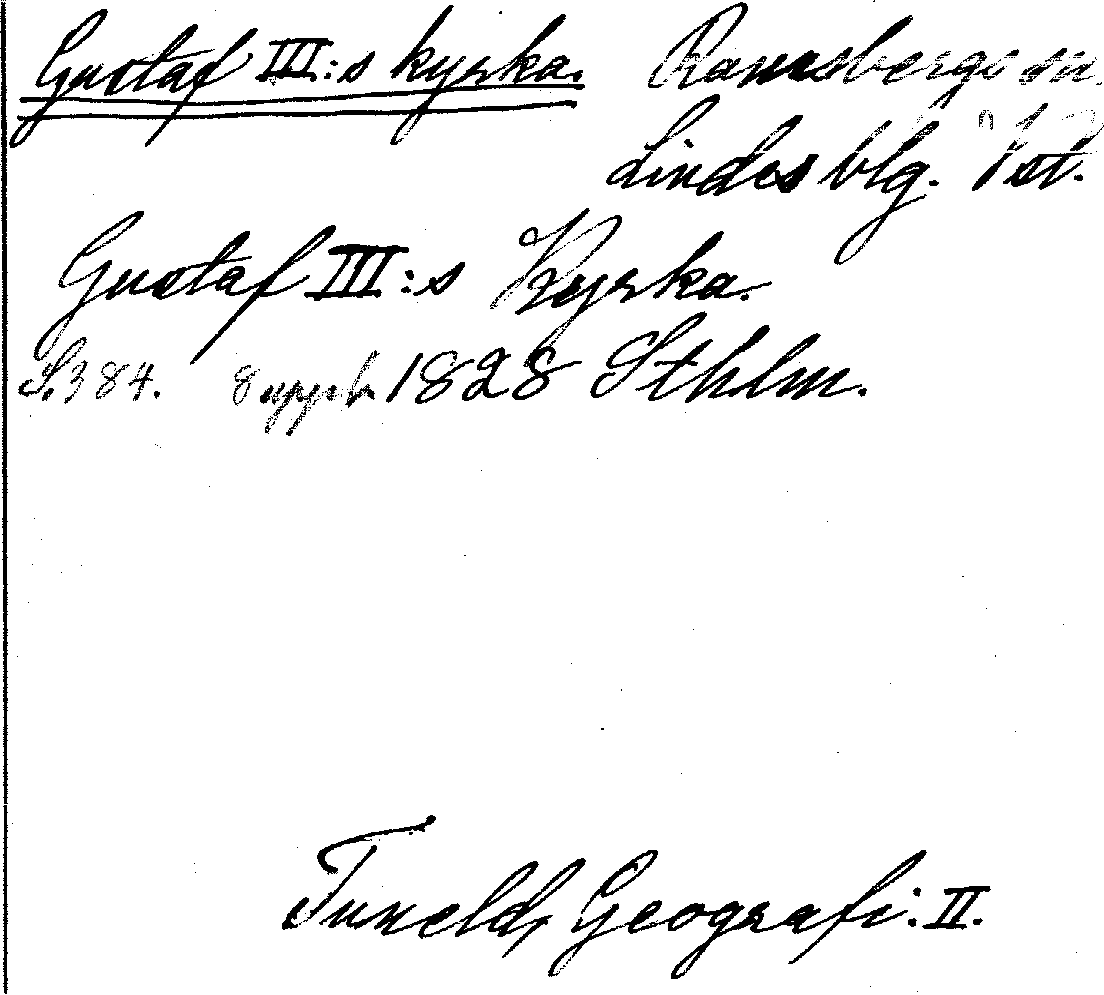 Gustaf III:s kyrka. Ramsbergs sn.
Lindes blg. Vst.
Gustaf III:s Kyrka.
S. 384. 8 uppl. 1828 Sthlm.
Tuneld, Geografi: II.